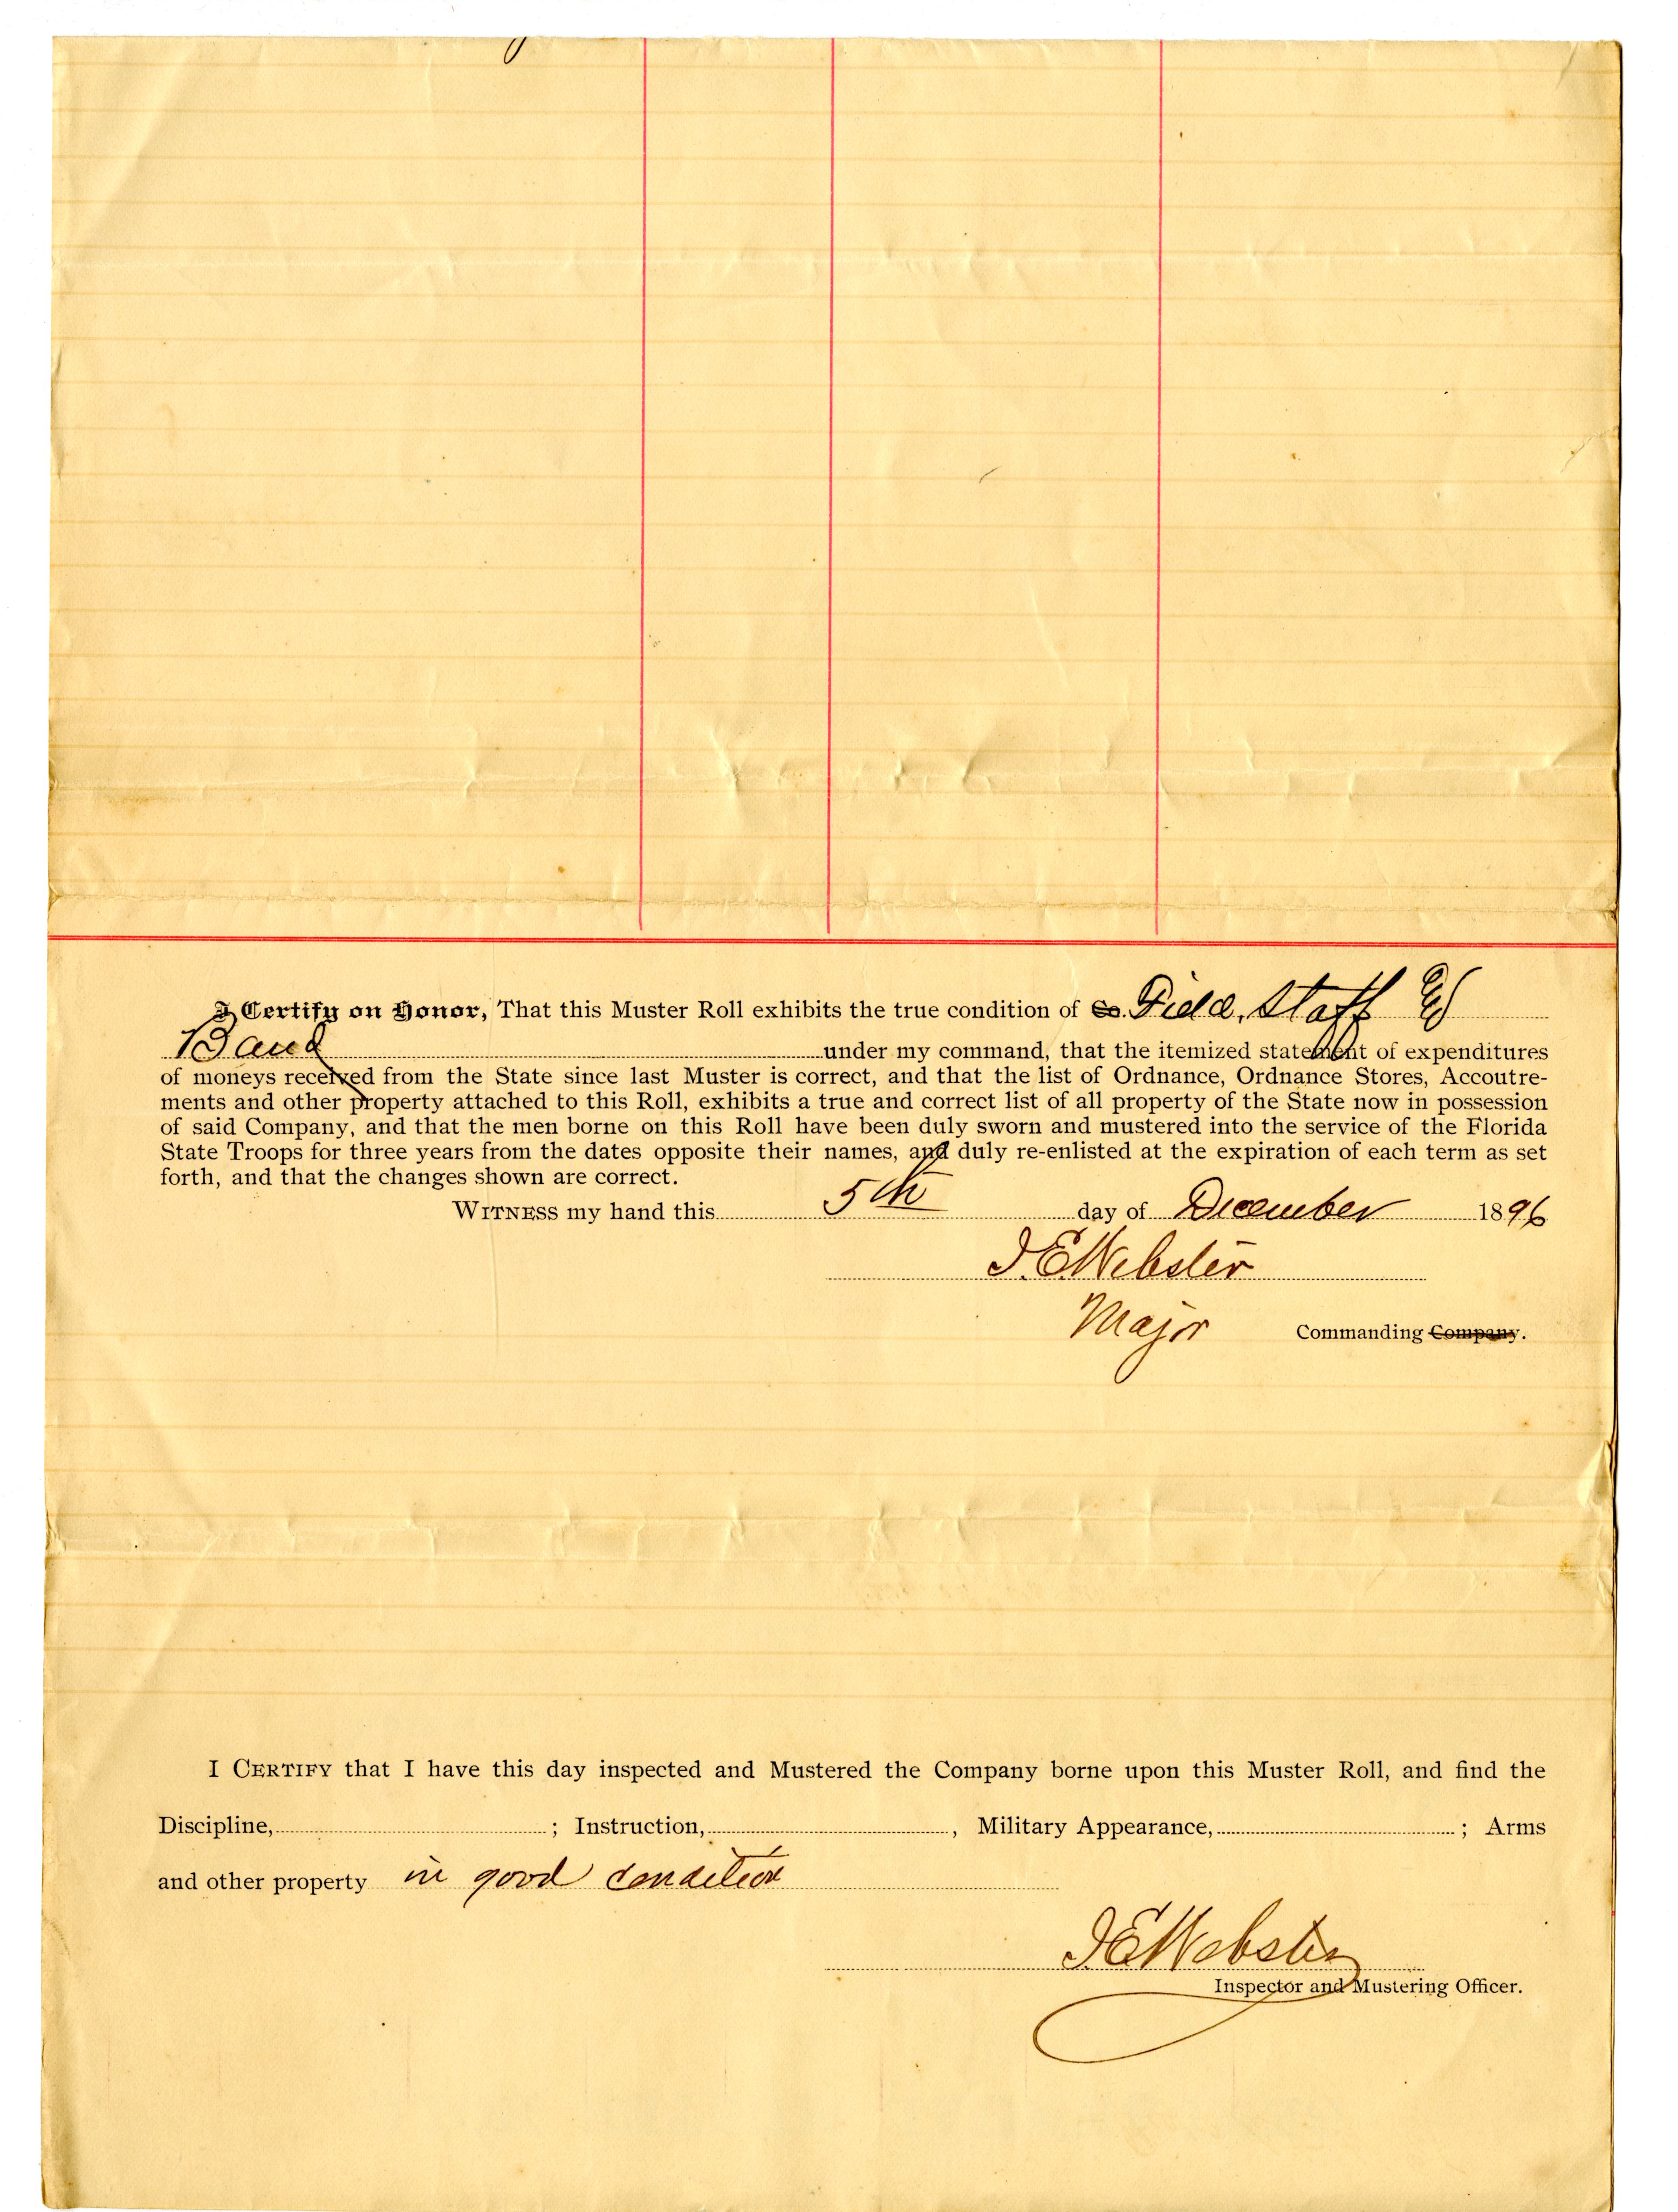 I Certify on Honor, That this Muster Roll exhibits the true condition of Co. Field, Staff &
Band under my command, that the itemized statement of expenditures
of moneys received from the State since last Muster is correct, and that the list of Ordnance, Ordnance Stores, Accoutre-
ments and other property attached to this Roll, exhibits a true and correct list of all property of the State now in possession
of said Company, and that the men borne on this Roll have been duly sworn and mustered into the service of the Florida
State Troops for three years from the dates opposite their names, and duly re-enlisted at the expiration of each term as set
forth, and that the changes shown are correct.
WITNESS my hand this 5th day of December 1896
I. E. Webster
Major Commanding Company.
I CERTIFY that I have this day inspected and Mustered the Company borne upon this Muster Roll, and find the
Discipline, ; Instruction, , Military Appearance, ; Arms
and other property in good condition
I E Webster
Inspector and Mustering Officer.